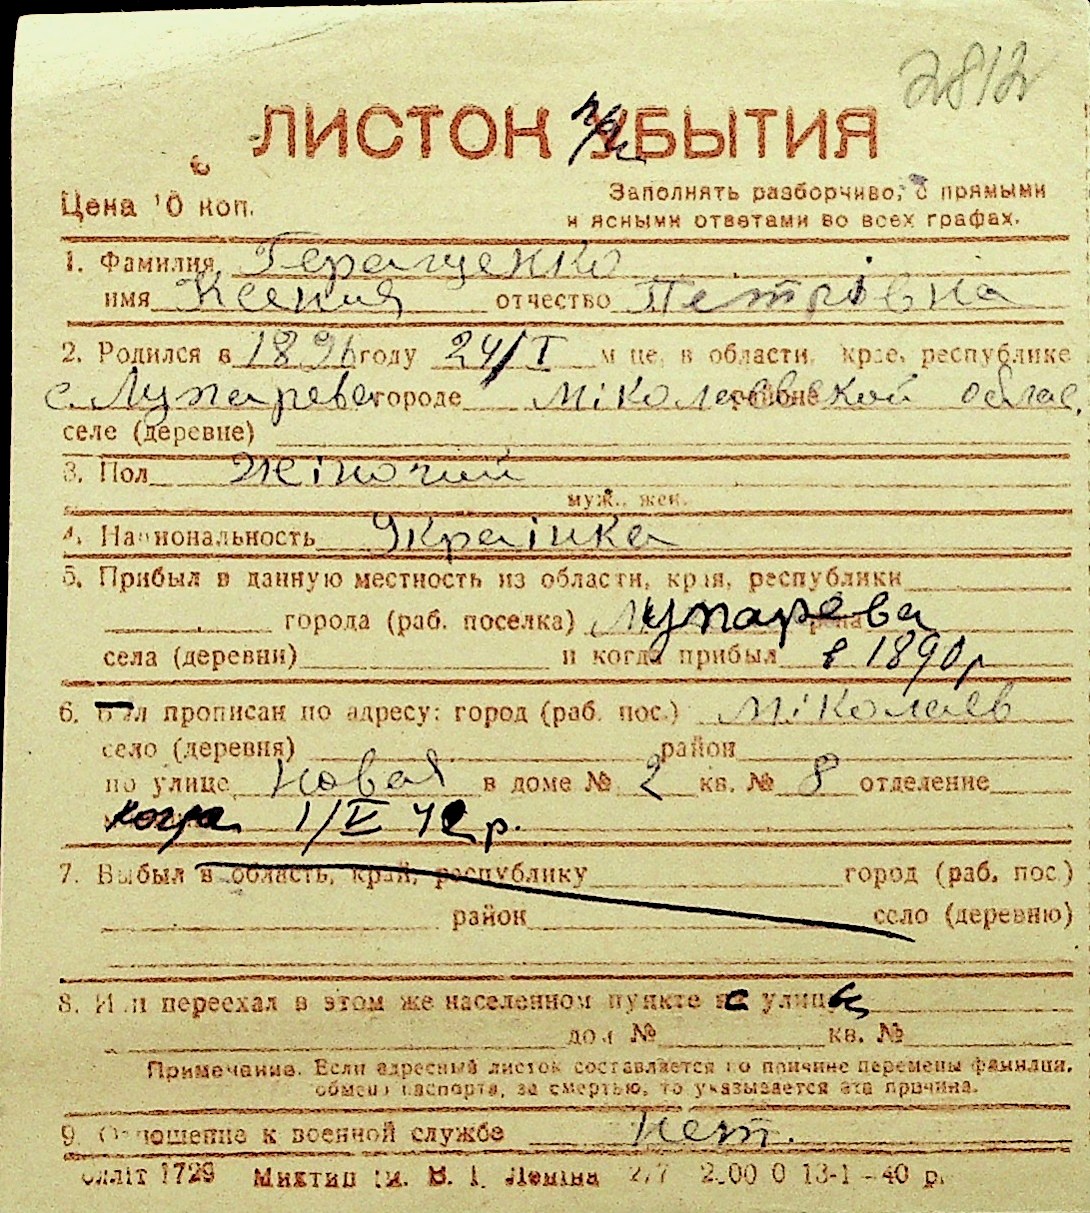 2812
ЛИСТОК УБЫТИЯ
Цена 10 коп.
Заполнять разборчиво, с прямыми
и ясными ответами во всех графах.
1. Фамилия Геращенко
имя Ксения отчество Петрівна
2. Родился в 1896 году 24/I м-це, в области, крае, республике
с. Лупарева городе Міколаевской облас.
селе (деревне)
3. Пол Жіночий
муж., жен.
4. Национальность Украінка
5. Прибыл в данную местность из области, края, республики
города (раб. поселка) Лупарева
села (деревни) и когда прибыл в 1890 р
6. Был прописан по адресу: город (раб. пос.) Міколаев
село (деревня) район
по улице Новая в доме № 2 кв. № 8 отделение
когда 1/V 42 р.
7. Выбыл в область, край, республику город (раб. пос.)
район село (деревню)
8. Или переехал в этом же населенном пункте с улицы
дом № кв. №
Примечание. Если адресный листок составляется по причине перемены фамилии,
обмена паспорта, за смертью, то указывается эта причина.
9. Отношение к военной службе Нет.
Оbлліт 1729 Миктип ім. В. І. Леніна 2.00 0 13-1-40 р.